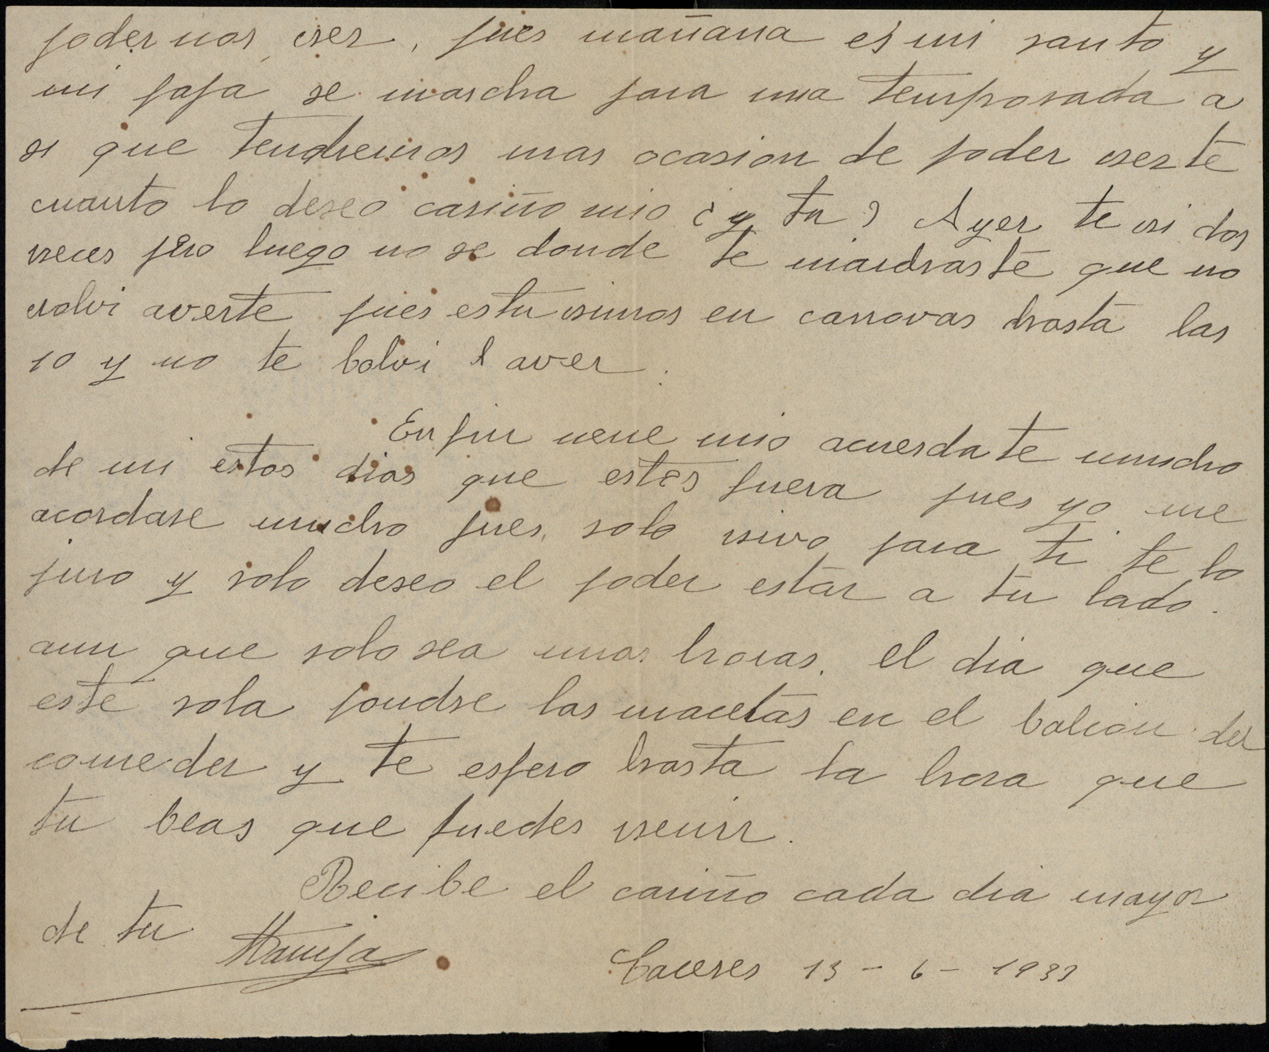 podernos ver, pues mañana es mi santo y
mi papa se marcha para una temporada a
si que tendremos mas ocasion de poder verte
cuanto lo deseo cariño mio ¿y tu? Ayer te vi dos
veces pero luego no se donde te marchaste que no
volvi averte pues estuvimos en canovas hasta las
10 y no te bolvi a aver.
En fin nene mio acuerdate mucho
de mi estos dias que estes fuera pues yo me
acordare mucho pues, solo vivo para ti te lo
juro y solo deseo el poder estar a tu lado.
aun que solo sea unas horas. el dia que
este sola pondre las macetas en el balcon del
comeder y te espero hasta la hora que
tu beas que puedes venir.
Recibe el cariño cada dia mayor
de tu
Caceres 13-6-1933